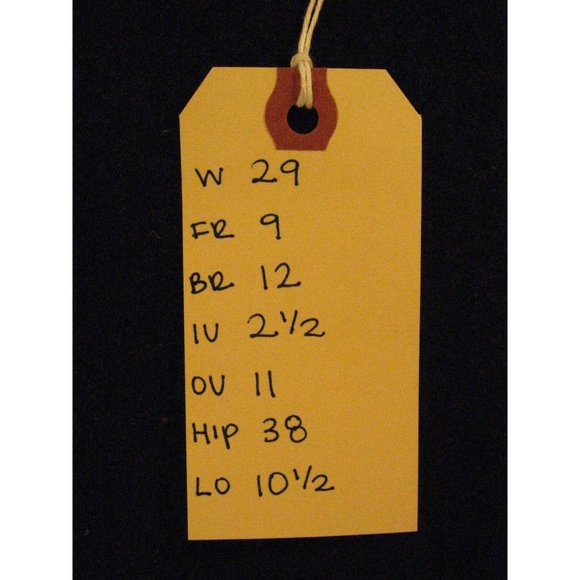 W 29
FR 9
BR 12
IU 2 1/2
OU 11
HIP 38
LO 10 1/2